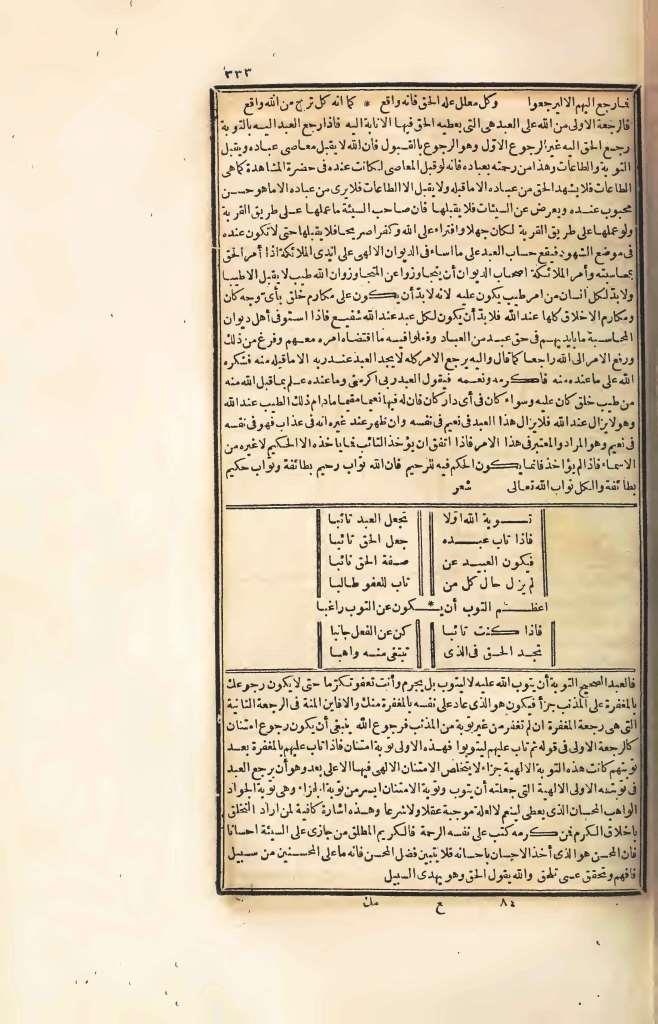 ٣٣٣
فارجع اليهم الا ليرجعوا وكل معلل عله الحق فانه واقع * كما انه كل ترج من الله واقع
فالرجعة الاولى من الله على العبد هى التى يعطيه الحق فيها الانابة اليه فاذا رجع العبد اليه بالتوبة
رجع الحق اليه غير الرجوع الاول وهو الرجوع بالقبول فان الله لا يقبل معاصى عباده ويقبل
التوبة والطاعات وهذا من رحمته بعباده فانه لو قبل المعاصى لكانت عنده فى حضرة المشاهدة كما هى
الطاعات فلا يشهد الحق من عباده الا ما قبله ولا يقبل الا الطاعات فلا يرى من عباده الا ما هو حسن
محبوب عنده ويعرض عن السيئات فلا يقبلها فان صاحب السيئة ما عملها على طريق القربة
ولو عملها على طريق القربة لكان جهلا وافتراء على الله وكفرا صريحا فلا يقبلها حتى لا تكون عنده
فى موضع الشهود فيقع حساب العبد على ما اساء فى الديوان الالهى على ايدى الملائكة اذا أمر الحق
بمحاسبته وأمر الملائكة اصحاب الديوان أن يتجاوزوا عن المتجاوز وان الله طيب لا يقبل الا طيبا
ولا بد لكل انسان من امر طيب يكون عليه لانه لا بد أن يكون على مكارم خلق بأى توجه كان
ومكارم الاخلاق كلها عند الله فلا بد أن يكون لكل عبد عند الله شفيع فاذا استوفى أهل ديوان
المحاسبة ما بايديهم فى حق عبد من العباد وفعلوا فيه ما اقتضاه امره معهم وفرغ من ذلك
ورفع الامر الى الله راجعا كما قال واليه يرجع الامر كله لا يجد العبد عند ربه الا ما قبله منه فشكره
الله على ما عنده منه فأكرمه ونعمه فيقول العبد ربى اكرمنى وما عنده علم بما قبل الله منه
من طيب خلق كان عليه وسواء كان فى أى دار كان فان له فيها نعيما مقيما مادام ذلك الطيب عند الله
وهو لا يزال عند الله فلا يزال هذا العبد فى نعيم فى نفسه وان ظهر عند غيره انه فى عذاب فهو فى نفسه
فى نعيم وهو المراد والمعتبر فى هذا الامر فاذا اتفق ان يؤخذ التائب فما يأخذه الا الحكيم لا غيره من
الاسماء فاذا لم يؤاخذ فانما يكون الحكم فيه للرحيم فان الله تواب رحيم بطائفة وتواب حكيم
بطائفة والكل تواب الله تعالى شعر
توبة الله اولا تجعل العبد تائبا
فاذا تاب عبده جعل الحق تائبا
فيكون العبيد عن صفة الحق تائبا
لم يزل حال كل من تاب للعفو طالبا
اعظم التوب أن يكون * عن التوب راغبا
فاذا كنت تائبا كن عن الفعل جانبا
تجد الحق فى الذى تبتغى منه واهبا
فالعبد الصحيح التوبة أن يتوب الله عليه لا ليتوب بل يجرم وأنت تعفو تكرما حتى لا يكون رجوعك
بالمغفرة على المذنب جزأ فيكون هو الذى عاد على نفسه بالمغفرة منك والا فاين المنة فى الرجعة الثانية
التى هى رجعة المغفرة ان لم تغفر من غير توبة من المذنب فرجوع الله ينبغى أن يكون رجوع امتنان
كالرجعة الاولى فى قوله ثم تاب عليهم ليتوبوا فهذه الاولى توبة امتنان فاذا تاب عليهم بالمغفرة بعد
توبتهم كانت هذه التوبة الالهية جزاء لا يتخلص الامتنان الالهى فيها الا على بعد وهو أن يرجع العبد
فى توبته الاولى الالهية التى جعلته أن يتوب وتوبة الامتنان ايسر من توبة الجزاء وهى توبة الجواد
الواهب المحسان الذى يعطى لينعم لا لعلة موجبة عقلا ولا شرعا وهذه اشارة كافية لمن اراد التخلق
باخلاق الكرم فمن كرمه كتب على نفسه الرحمة فالكريم المطلق من جازى على السيئة احسانا
فان المحسن هو الذى أخذ الاحسان باحسانه فلا يتبين فضل المحسن فانه ما على المحسنين من سبيل
فافهم وتحقق عسى تلحق والله يقول الحق وهو يهدى السبيل
٨٤ ح مك